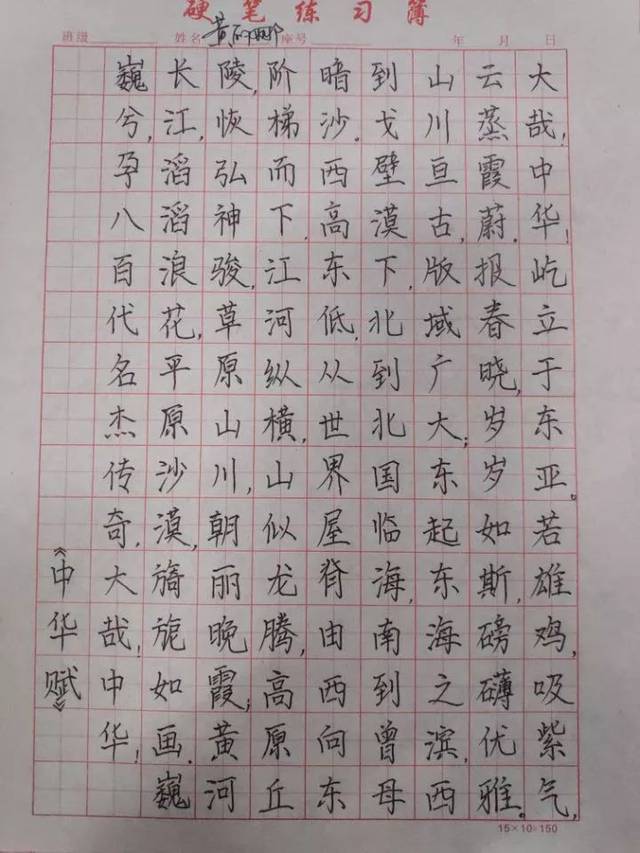 硬笔练习簿
班级 姓名 黄 座号 年 月 日
大哉,中华!屹立于东亚。若雄鸡,吸紫气,
云蒸霞蔚.报春晓,岁岁如斯,磅礴优雅。
山川亘古,版域广大;东起东海之滨,西
到戈壁漠下,北到北国临海,南到曾母
暗沙.西高东低,从世界屋脊由西向东
阶梯而下.江河纵横,山似龙腾,高原丘
陵,恢弘神骏,草原山川,朝丽晚霞;黄河
长江,滔滔浪花,平原沙漠,旖旎如画.巍
巍兮,孕八百代名杰传奇,大哉,中华!
《中华赋》
15×10=150